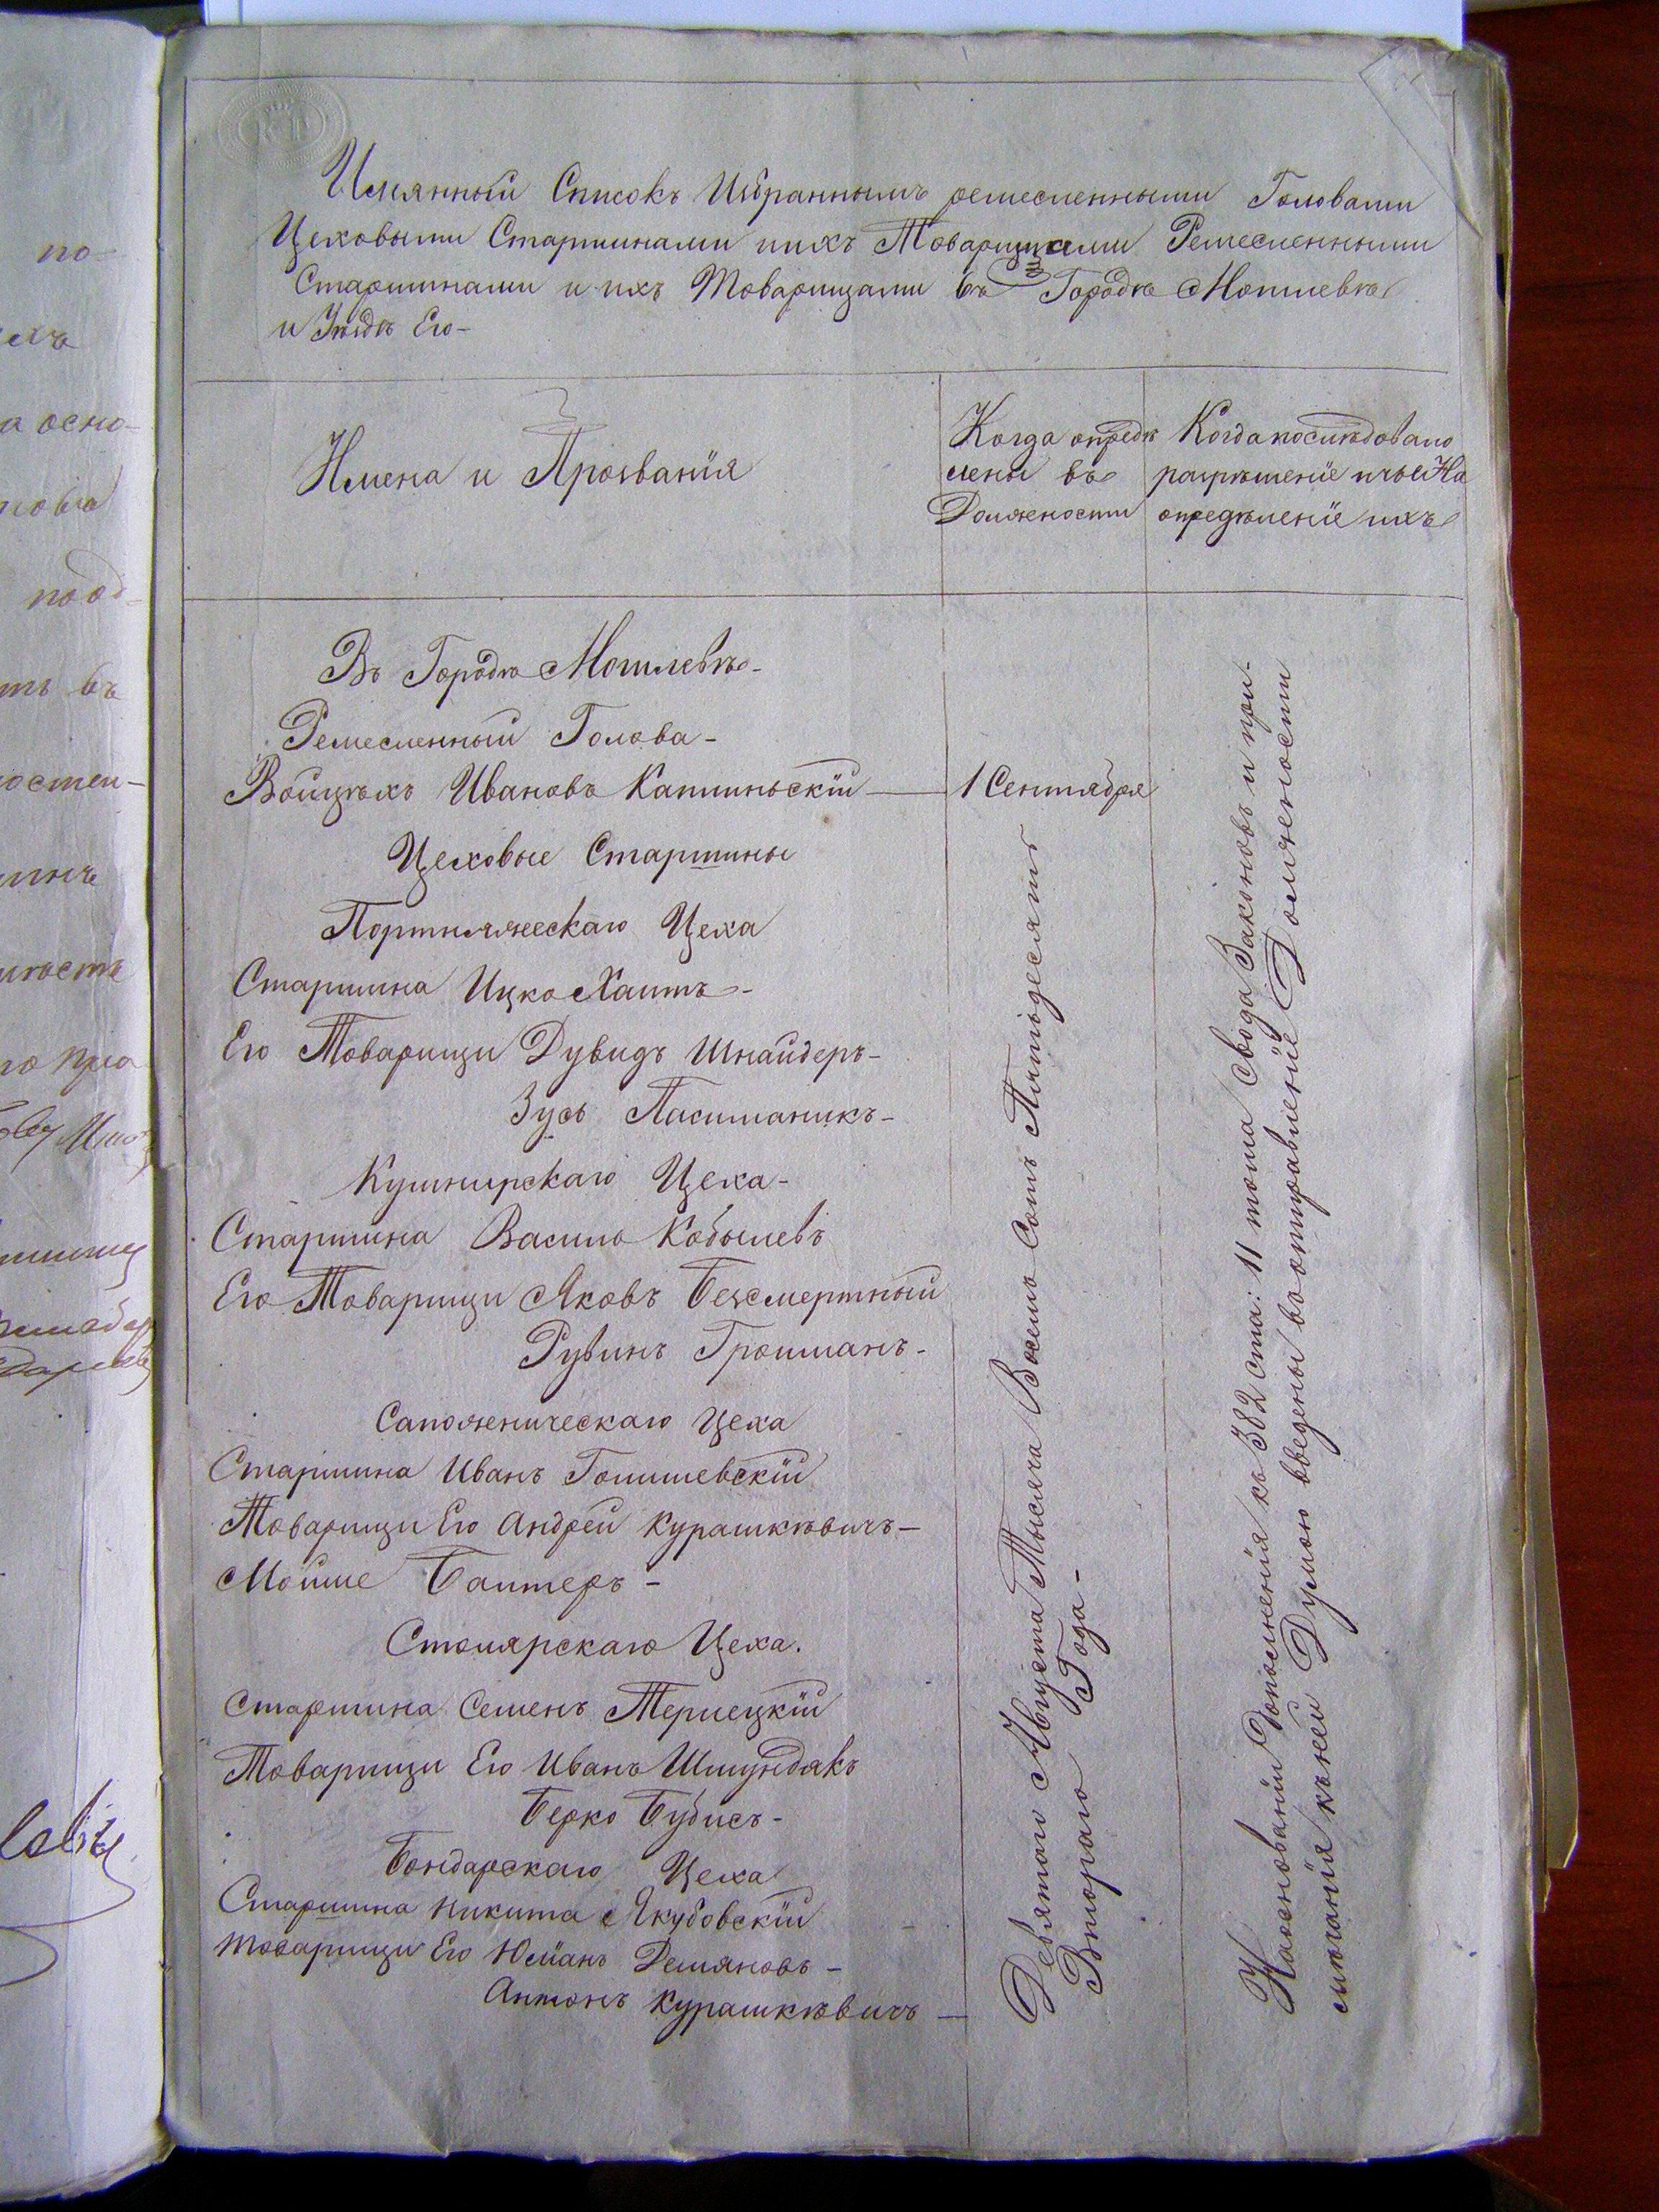 Имянный Списокъ Избраннымъ ремесленными Головами
Цеховыми Старшинами и ихъ Товарищами Ремесленными
Старшинами и ихъ Товарищами въ Городѣ Могилевѣ
и Уѣздѣ Его-
Имена и Прозванія
Когда опредѣ
лены въ
Должности
Когда послѣдовало
разрѣшеніе и чье На
опредѣленіе ихъ
Въ Городѣ Могилевѣ-
Ремесленный Голова-
Войцѣхъ Ивановъ Каминьскій
1 Сентября
Цеховые Старшины
Портняжескаго Цеха
Старшина Ицко Хаитъ-
Его Товарищи Дувидъ Шнайдеръ-
Зусь Пасиманикъ-
Кушнирскаго Цеха-
Старшина Василь Кобылевъ
Его Товарищи Яковъ Безсмертный
Рувинъ Гройманъ-
Сапожническаго Цеха
Старшина Иванъ Голишевскій
Товарищи Его Андрей Курашкѣвичъ-
Мойше Баитеръ-
Столярскаго Цеха.
Старшина Семенъ Терлецкій
Товарищи Его Иванъ Шмундякъ
Берко Бубисъ-
Бондарскаго Цеха
Старшина Никита Якубовскій
Товарищи Его Юліанъ Демяновъ-
Антонъ Курашкѣвичъ
Девятаго Августа Тысяча Восемь Сотъ Пятьдесятъ
Втораго Года-
На основаніи Дополненія къ 382 ста: 11 тома Свода Законовъ и при-
мѣчанія къ ней Думою введены во отправленіе Должности